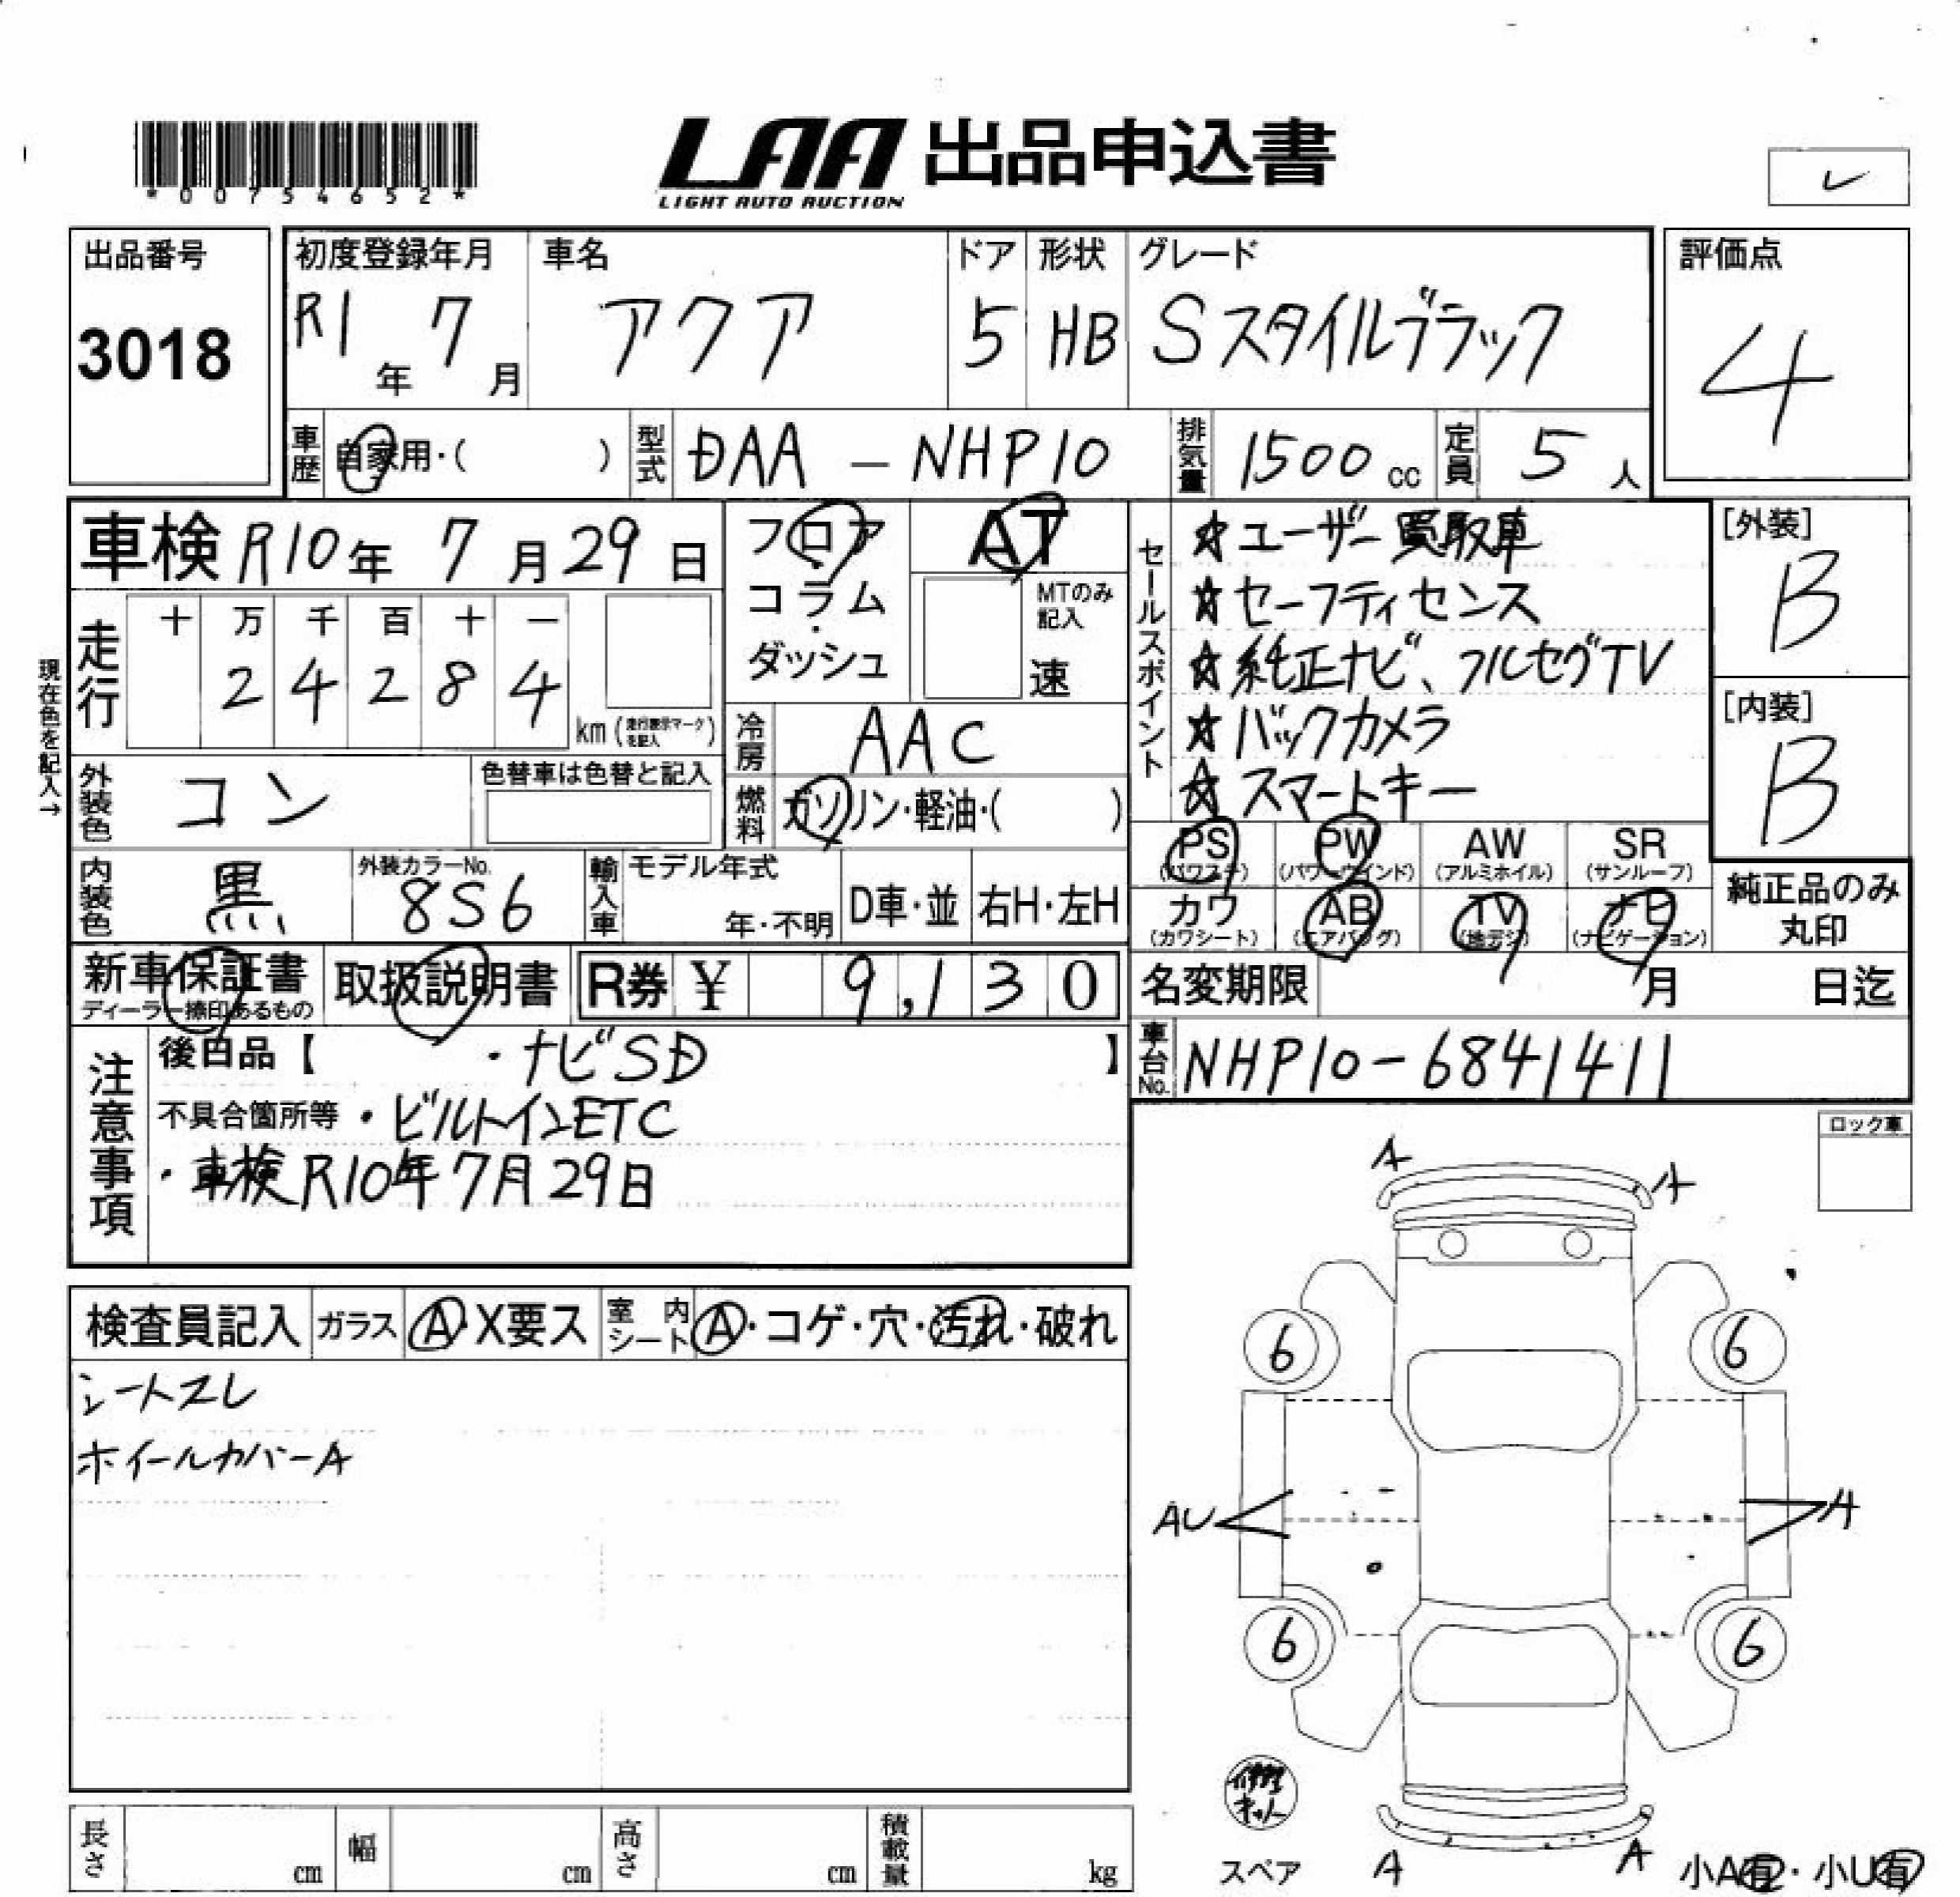 *00754652*
LAA 出品申込書
LIGHT AUTO AUCTION
レ
出品番号
3018
初度登録年月
R1年 7月
車名
アクア
ドア
5
形状
HB
グレード
Sスタイルブラック
評価点
4
車歴 自家用・( )
型式 DAA - NHP10
排気量 1500 cc
定員 5 人
車検 R10年 7月29日
フロア・コラム・ダッシュ
AT
MTのみ記入
速
セールスポイント
☆ユーザー買取車
☆セーフティセンス
☆純正ナビ、フルセグTV
☆バックカメラ
☆スマートキー
[外装]
B
[内装]
B
現在色を記入→
走行
十 万 千 百 十 一
2 4 2 8 4
km (走行表示マークを記入)
冷房 AAC
外装色 コン
色替車は色替と記入
燃料 ガソリン・軽油・( )
PS (パワステ)
PW (パワーウインド)
AW (アルミホイル)
SR (サンルーフ)
カワ (カワシート)
AB (エアバッグ)
TV (地デジ)
ナビ (ナビゲーション)
純正品のみ丸印
内装色 黒
外装カラーNo. 8S6
輸入車
モデル年式
年・不明
D車・並
右H・左H
新車保証書
ディーラー捺印あるもの
取扱説明書
R券 ¥ 9,130
名変期限 月 日迄
車台No. NHP10-6841411
注意事項
後日品【 ・ナビSD 】
不具合箇所等 ・ビルトインETC
・車検R10年7月29日
ロック車
検査員記入
ガラス A・X要ス
室内シート A・コゲ・穴・汚れ・破れ
シートスレ
ホイールカバーA
A
A
6
6
AU
A
6
6
修理キット
スペア
A
A
小A有・小U有
長さ cm
幅 cm
高さ cm
積載量 kg